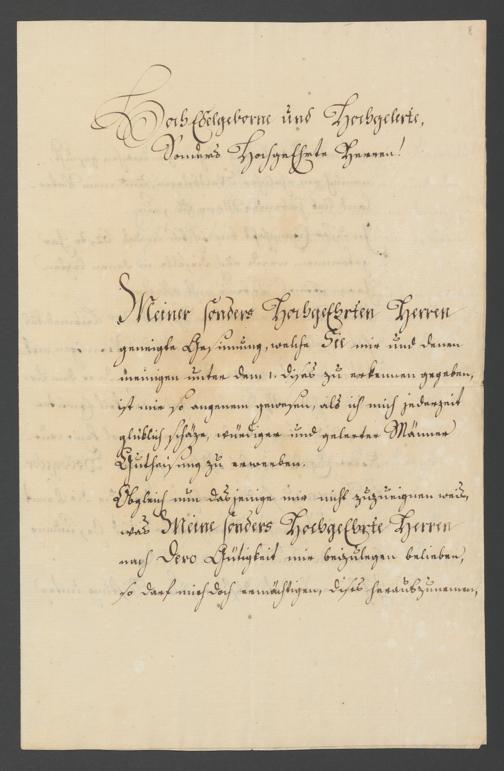 HochEdelgeborne und Hochgelerte,
Sonders HochgeEhrte Herren!
Meiner sonders HochgeEhrten Herren
geneigte Gesinnung, welche Sie mir und denen
meinigen unter dem 1. dises zu erkennen gegeben,
ist mir so angenem gewesen, als ich mich jederzeit
glüklich schäze, würdiger und gelerter Männer
Gutheisung zu erwerben.
Obgleich nun dasjenige mir nicht zuzueignen weis,
was Meine sonders HochgeEhrte Herren
nach Dero Gütigkeit mir beizulegen belieben,
so darf mich doch ermächtigen, dises herauszunemen,